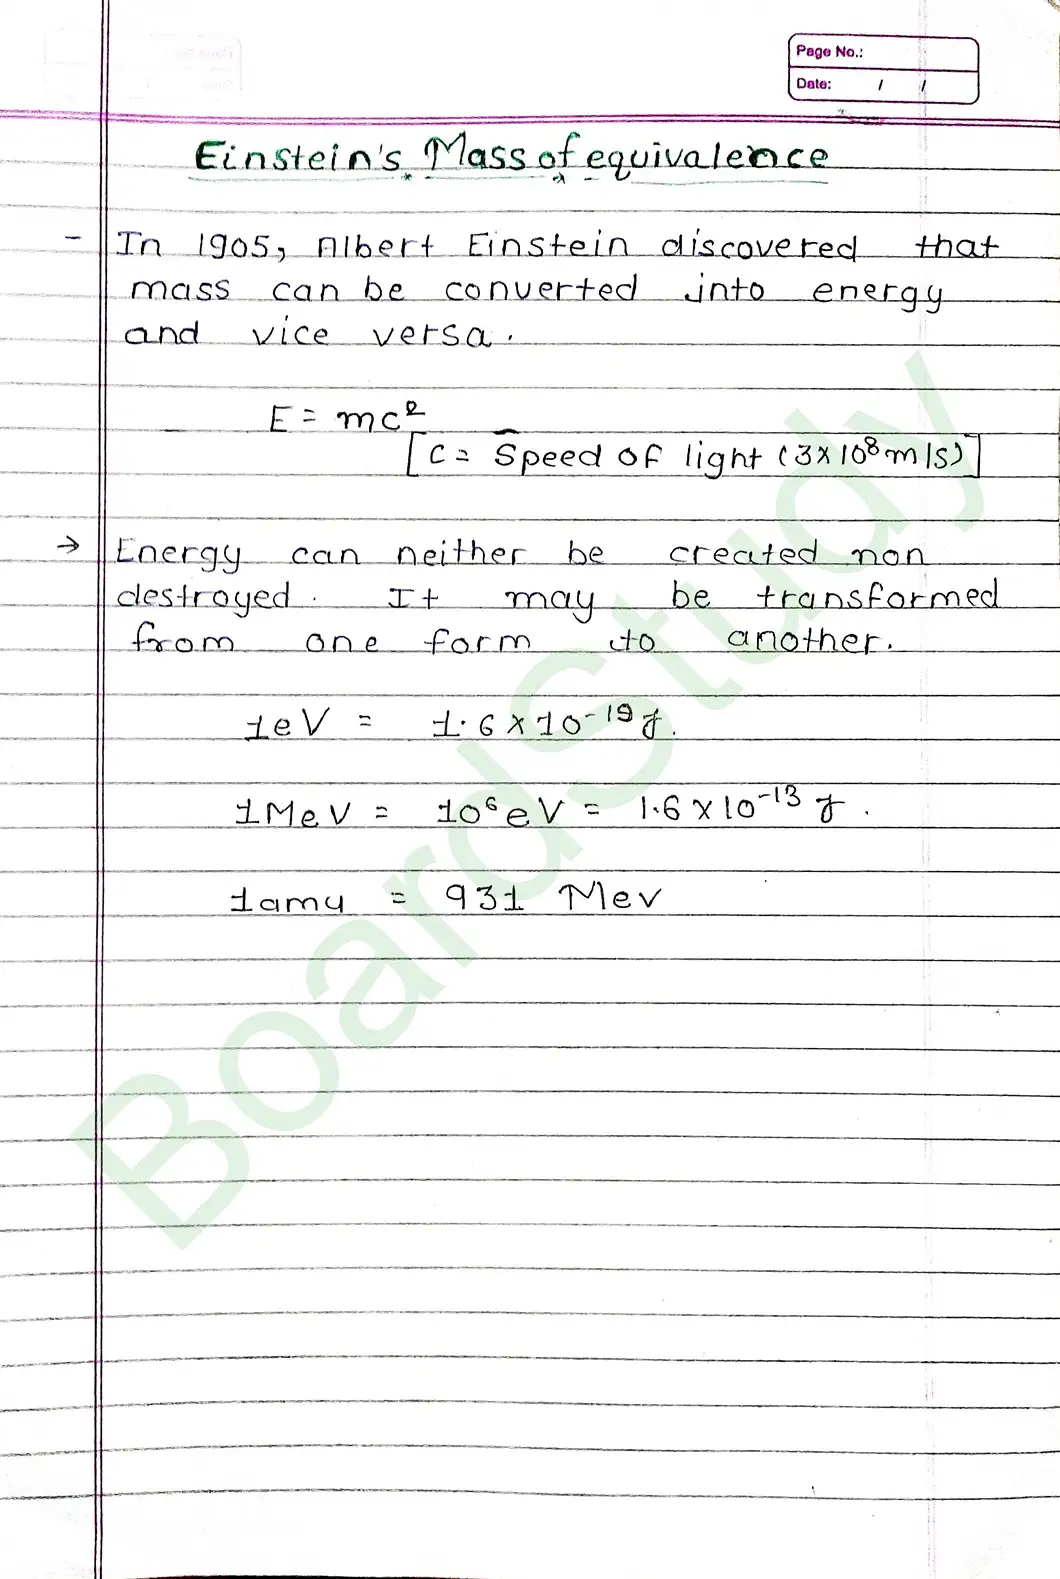 Page No.:
Date: / /
Einstein's Mass of equivalence
- In 1905, Albert Einstein discovered that
mass can be converted into energy
and vice versa.
E = mc²
[C = Speed of light (3×10⁸m/s)]
→ Energy can neither be created non
destroyed. It may be transformed
from one form to another.
1eV = 1.6×10⁻¹⁹J.
1MeV = 10⁶eV = 1.6×10⁻¹³J.
1amu = 931 Mev
BoardStudy